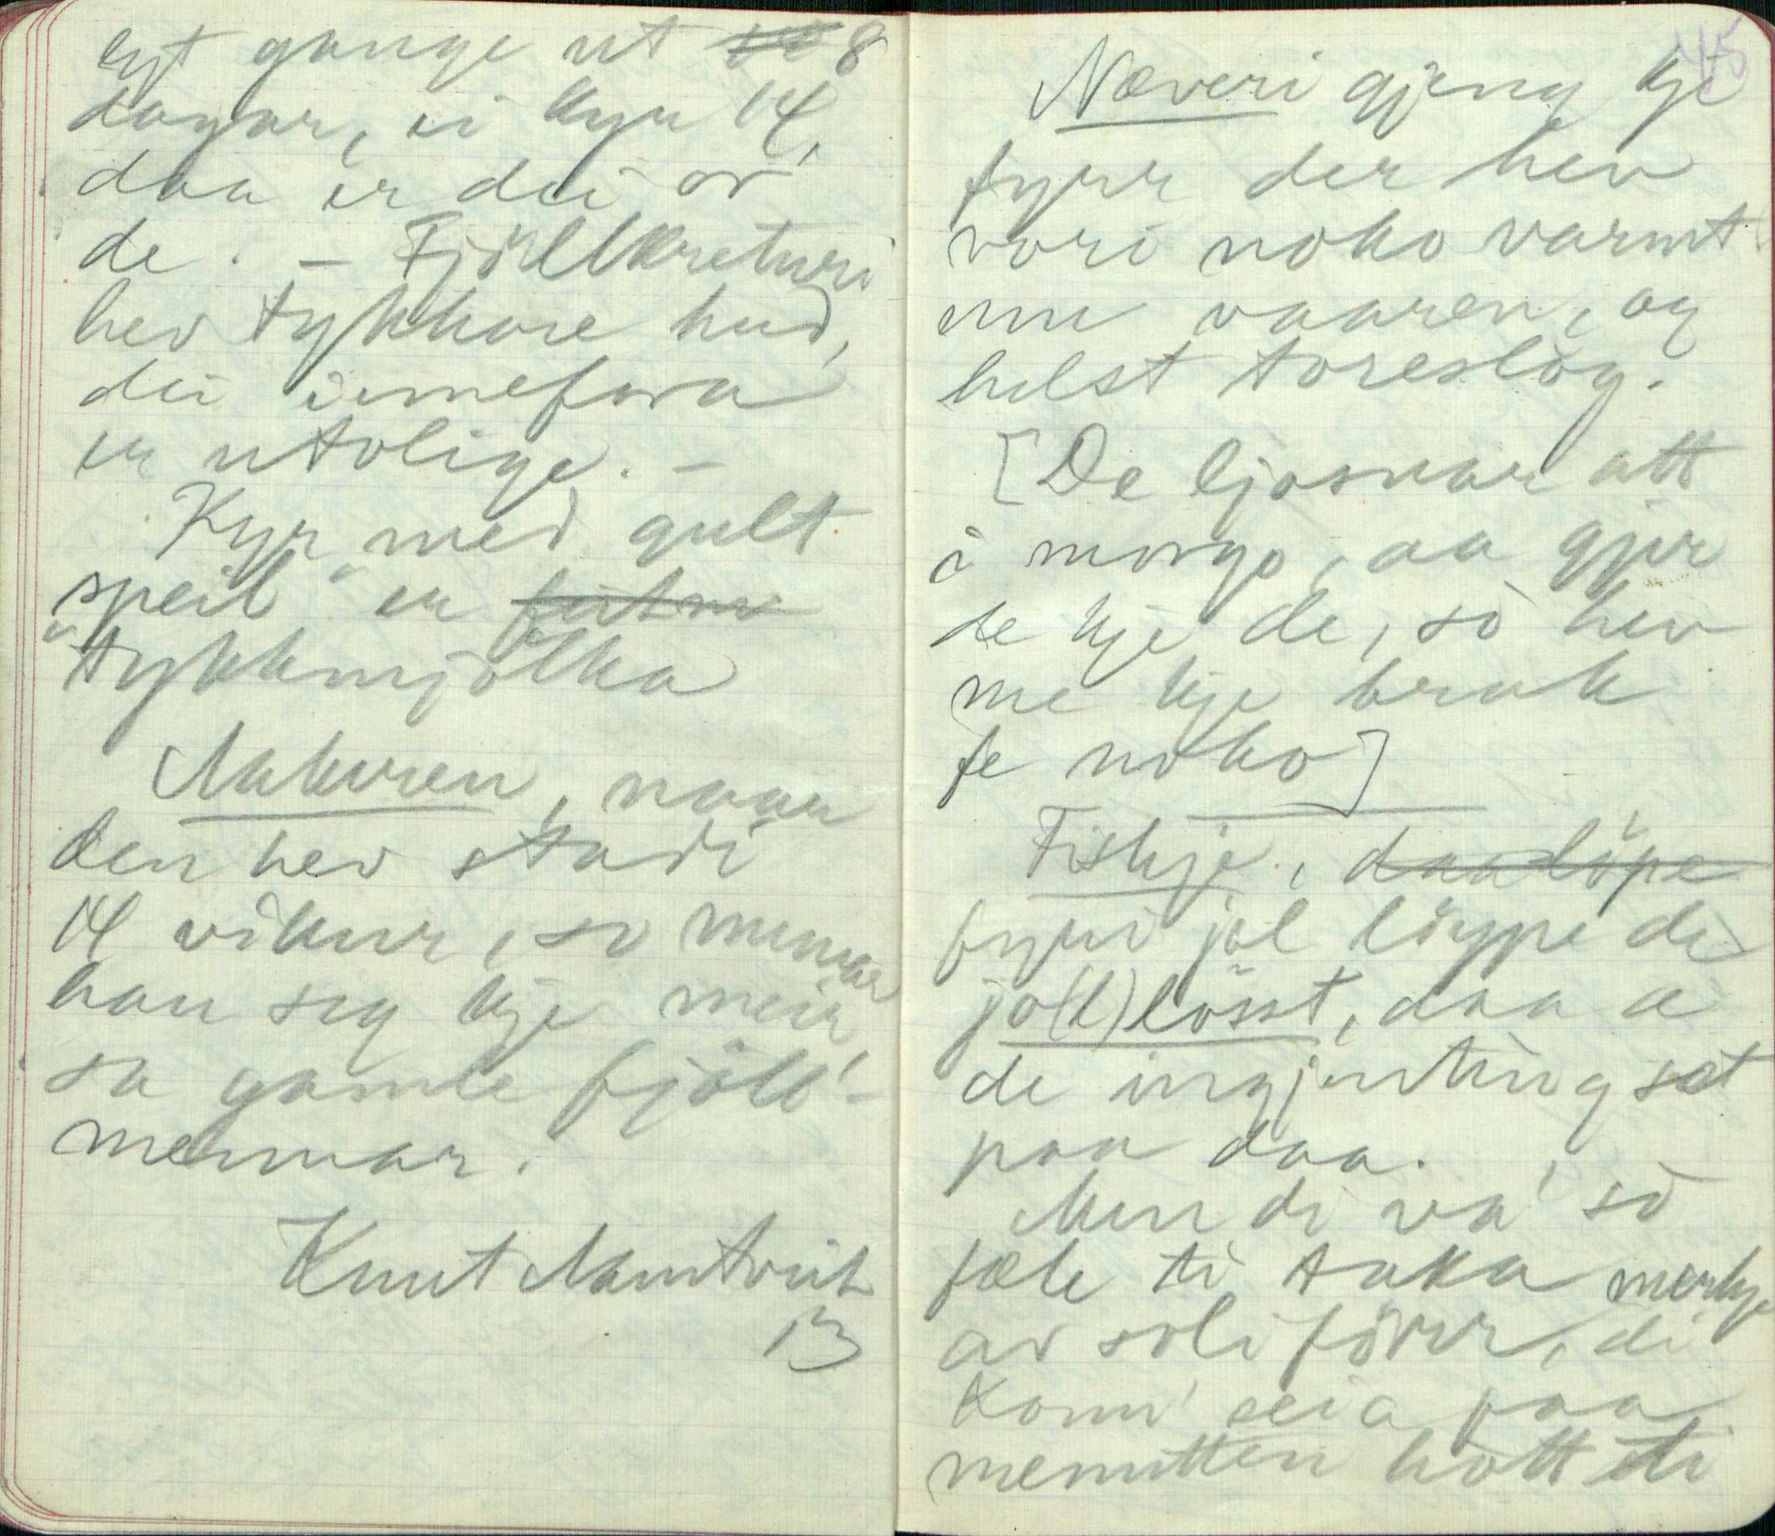 eyt gange ut so 8
dagar, ei kyr 14,
daa er dei or
de. – Fjöllkreturi
hev tykkare hud,
dei innefora
er utolige. –
Kyr med gult
"speil" er
tykkmjölka
Aakeren, naar
den hev stadi
14 vikur, so munar
han seg kje meir,
sa gamle fjöll-
mennar.
Knut Mandtveit
13
45
Næveri gjeng kje
fyrr der hev
vori noko varmt
um vaaren, og
helst toreslög.
[De ljosnar att
i morgo, aa gjer
de kje de, so hev
me kje bruk
fe noko]
Fiskje, daa löpe
fyri jol löype de
jo(l)lösst, daa æ
de ingjenting set
paa daa.
Men di va' so
fæle ti taka merkje
av soli förr, di
konn' seia paa
menutten hott ti